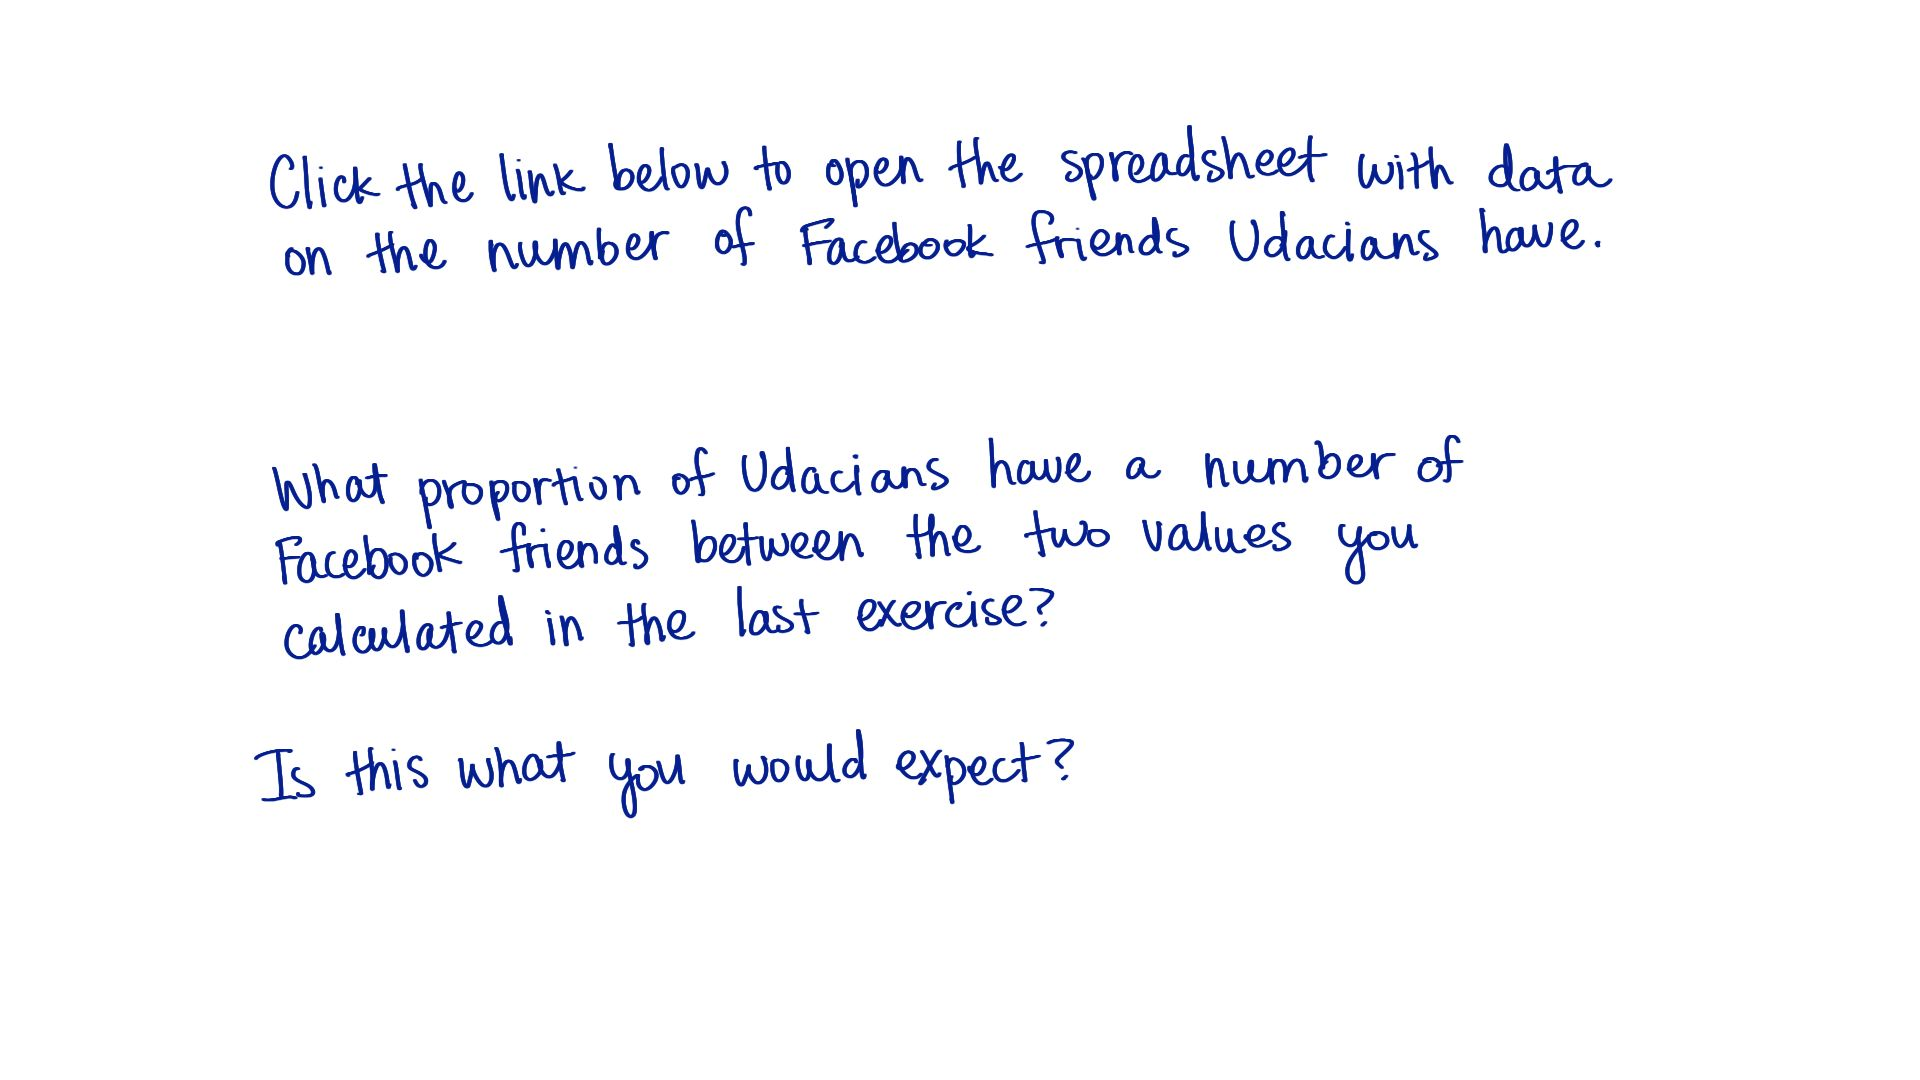 Click the link below to open the spreadsheet with data
on the number of Facebook friends Udacians have.
What proportion of Udacians have a number of
Facebook friends between the two values you
calculated in the last exercise?
Is this what you would expect?